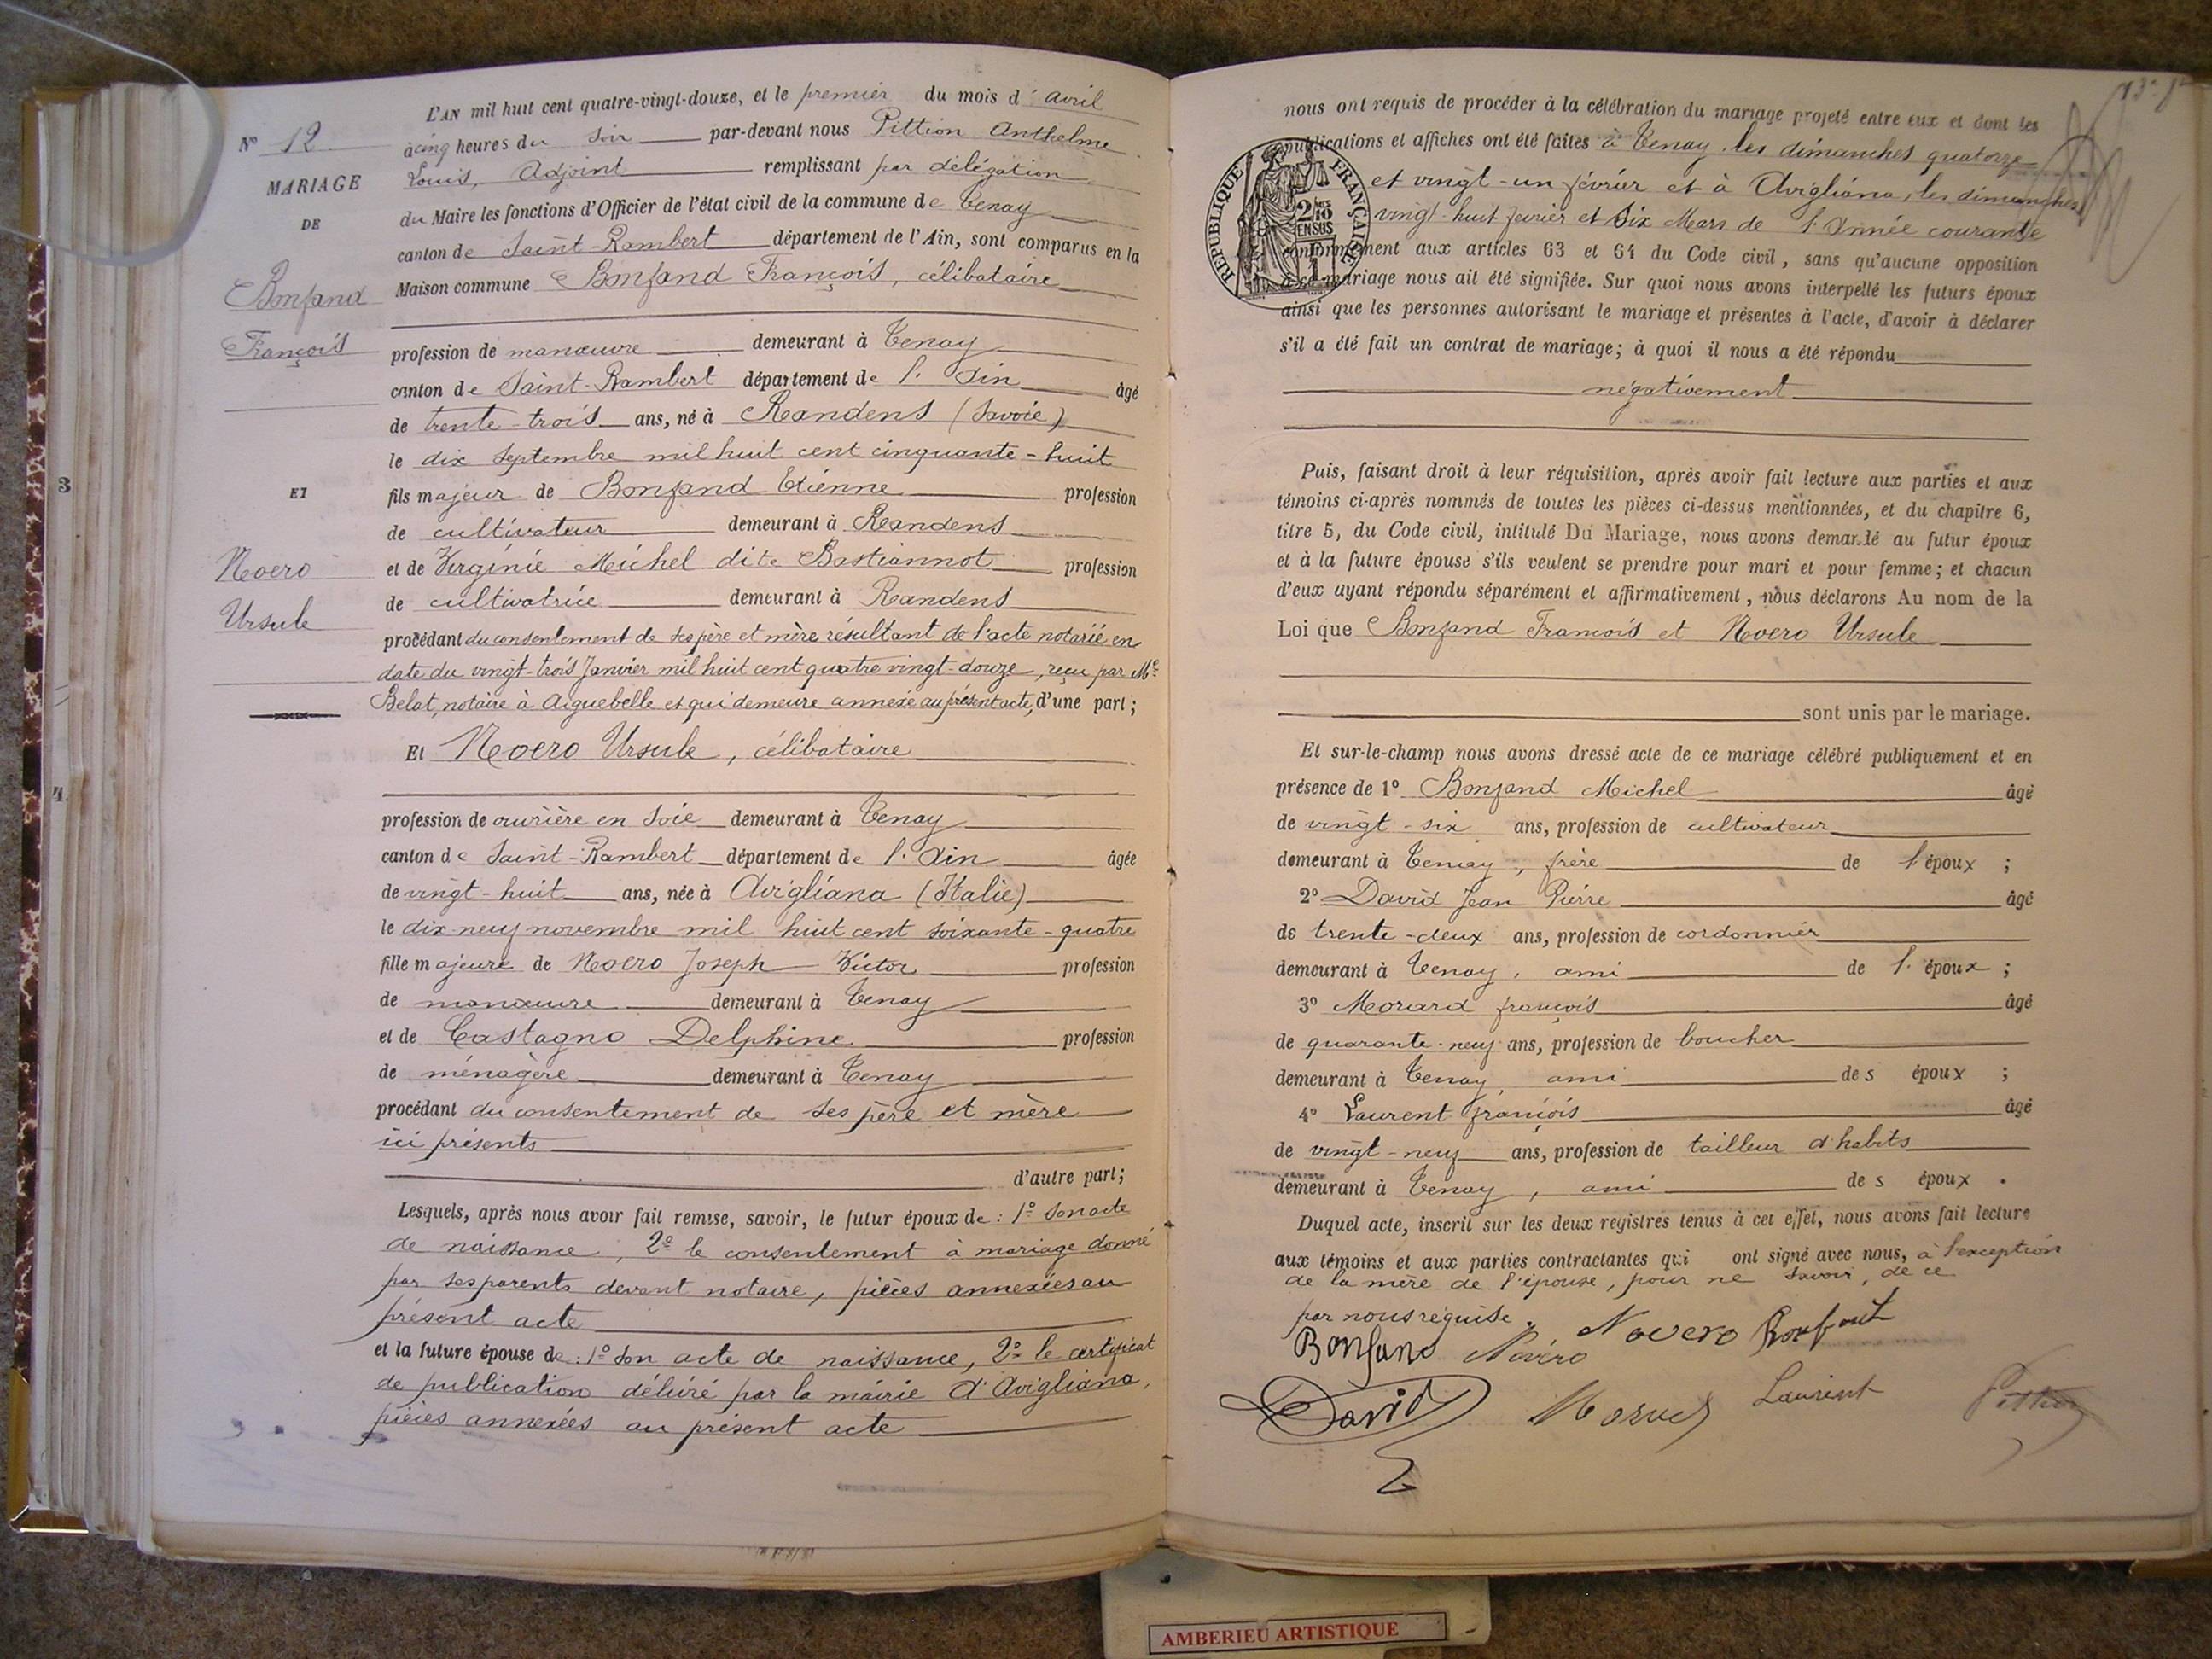 L'AN mil huit cent quatre-vingt-douze, et le premier du mois d'avril
N° 12
à cinq heures du soir par-devant nous Pittion Anthelme
MARIAGE
Louis, Adjoint remplissant par délégation
DE
du Maire les fonctions d'Officier de l'état civil de la commune de Tenay
canton de Saint-Rambert département de l'Ain, sont comparus en la
Bonfand
Maison commune Bonfand François, célibataire
François
profession de manœuvre demeurant à Tenay
canton de Saint-Rambert département de l'Ain âgé
de trente-trois ans, né à Randens (Savoie)
le dix septembre mil huit cent cinquante-huit
ET
fils majeur de Bonfand Etienne profession
de cultivateur demeurant à Randens
Noero
et de Virginie Michel dite Bastiannot profession
Ursule
de cultivatrice demeurant à Randens
procédant du consentement de ses père et mère résultant de l'acte notarié en
date du vingt-trois Janvier mil huit cent quatre vingt-douze, reçu par Me
Belat, notaire à Aiguebelle et qui demeure annexé au présent acte, d'une part;
Et Noero Ursule, célibataire
profession de ouvrière en soie demeurant à Tenay
canton de Saint-Rambert département de l'Ain âgée
de vingt-huit ans, née à Avigliana (Italie)
le dix-neuf novembre mil huit cent soixante-quatre
fille majeure de Noero Joseph Victor profession
de manœuvre demeurant à Tenay
et de Castagno Delphine profession
de ménagère demeurant à Tenay
procédant du consentement de ses père et mère
ici présents
d'autre part;
Lesquels, après nous avoir fait remise, savoir, le futur époux de : 1° son acte
de naissance, 2° le consentement à mariage donné
par ses parents devant notaire, pièces annexées au
présent acte
et la future épouse de : 1° son acte de naissance, 2° le certificat
de publication délivré par la mairie d'Avigliana,
pièces annexées au présent acte
3
4
nous ont requis de procéder à la célébration du mariage projeté entre eux et dont les
publications et affiches ont été faites à Tenay, les dimanches quatorze
et vingt-un février et à Avigliana, les dimanches
vingt-huit février et six Mars de l'Année courante
conformément aux articles 63 et 64 du Code civil, sans qu'aucune opposition
à ce mariage nous ait été signifiée. Sur quoi nous avons interpellé les futurs époux
ainsi que les personnes autorisant le mariage et présentes à l'acte, d'avoir à déclarer
s'il a été fait un contrat de mariage; à quoi il nous a été répondu
négativement
RÉPUBLIQUE FRANÇAISE
2/10 EN SUS
Puis, faisant droit à leur réquisition, après avoir fait lecture aux parties et aux
témoins ci-après nommés de toutes les pièces ci-dessus mentionnées, et du chapitre 6,
titre 5, du Code civil, intitulé Du Mariage, nous avons demandé au futur époux
et à la future épouse s'ils veulent se prendre pour mari et pour femme; et chacun
d'eux ayant répondu séparément et affirmativement, nous déclarons Au nom de la
Loi que Bonfand François et Noero Ursule
sont unis par le mariage.
Et sur-le-champ nous avons dressé acte de ce mariage célébré publiquement et en
présence de 1° Bonfand Michel âgé
de vingt-six ans, profession de cultivateur
demeurant à Tenay, frère de l'époux ;
2° David Jean Pierre âgé
de trente-deux ans, profession de cordonnier
demeurant à Tenay, ami de l'époux ;
3° Morard françois âgé
de quarante-neuf ans, profession de boucher
demeurant à Tenay, ami des époux ;
4° Laurent françois âgé
de vingt-neuf ans, profession de tailleur d'habits
demeurant à Tenay, ami des époux .
Duquel acte, inscrit sur les deux registres tenus à cet effet, nous avons fait lecture
aux témoins et aux parties contractantes qui ont signé avec nous, à l'exception
de la mère de l'épouse, pour ne savoir, de ce
par nous requise.
Bonfand Novéro Novero Bonfant
David Laurent Pittion
AMBERIEU ARTISTIQUE